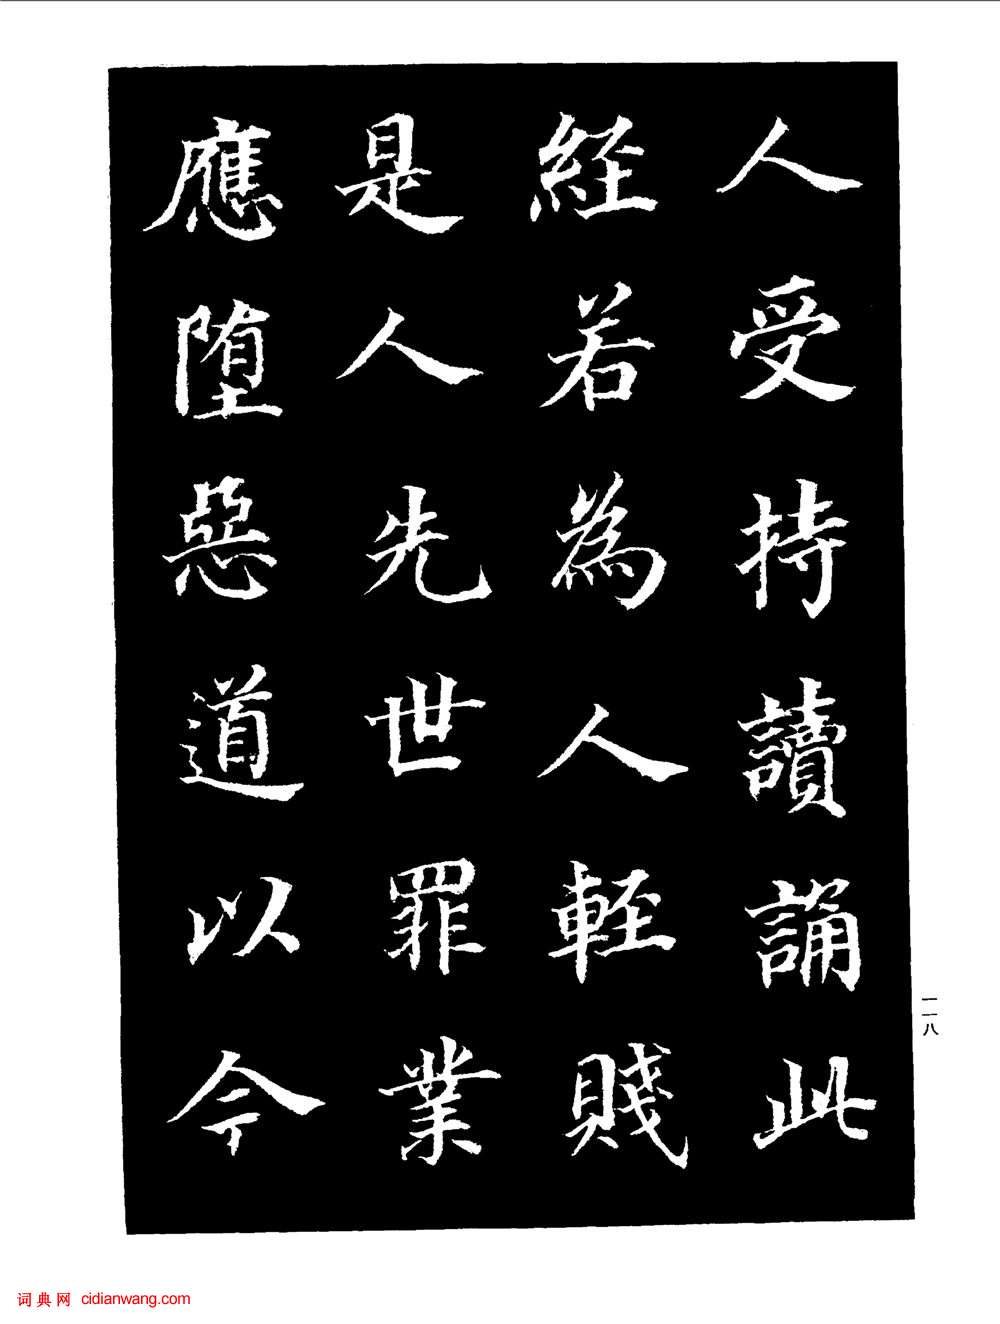 人受持讀誦此
経若為人輕賤
是人先世罪業
應堕惡道以今
一一八
词典网 cidianwang.com